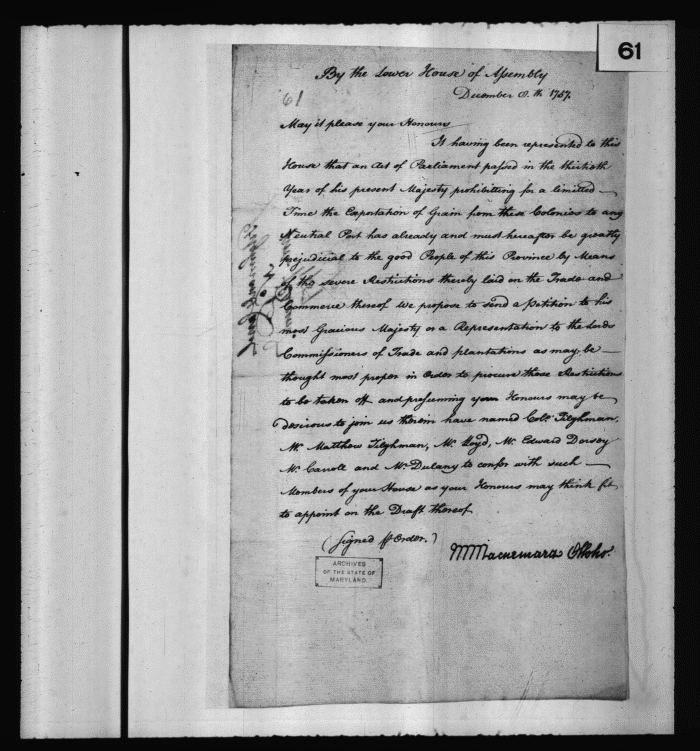 61
61
By the Lower House of Assembly
December 8.th 1757.
May it please your Honours
It having been represented to this
House that an Act of Parliament passed in the thirtieth
Year of his present Majesty prohibitting for a limitted
Time the Exportation of Grain from these Colonies to any
Neutral Port has already and must hereafter be greatly
prejudicial to the good People of this Province by Means
of the severe Restrictions thereby laid on the Trade and
Commerce thereof We propose to send a Petition to his
most Gracious Majesty or a Representation to the Lords
Commissioners of Trade and plantations as may be
thought most proper in Order to procure those Restrictions
to be taken off and presuming your Honours may be
desirous to join us therein have named Colo. Tilghman,
Mr. Matthew Tilghman, Mr. Lloyd, Mr. Edward Dorsey
Mr. Carroll and Mr. Dulany to confer with such
Members of your House as your Honours may think fit
to appoint on the Draft thereof
(Signed p Order.)
MMacnemara
ARCHIVES
OF THE STATE OF
MARYLAND.